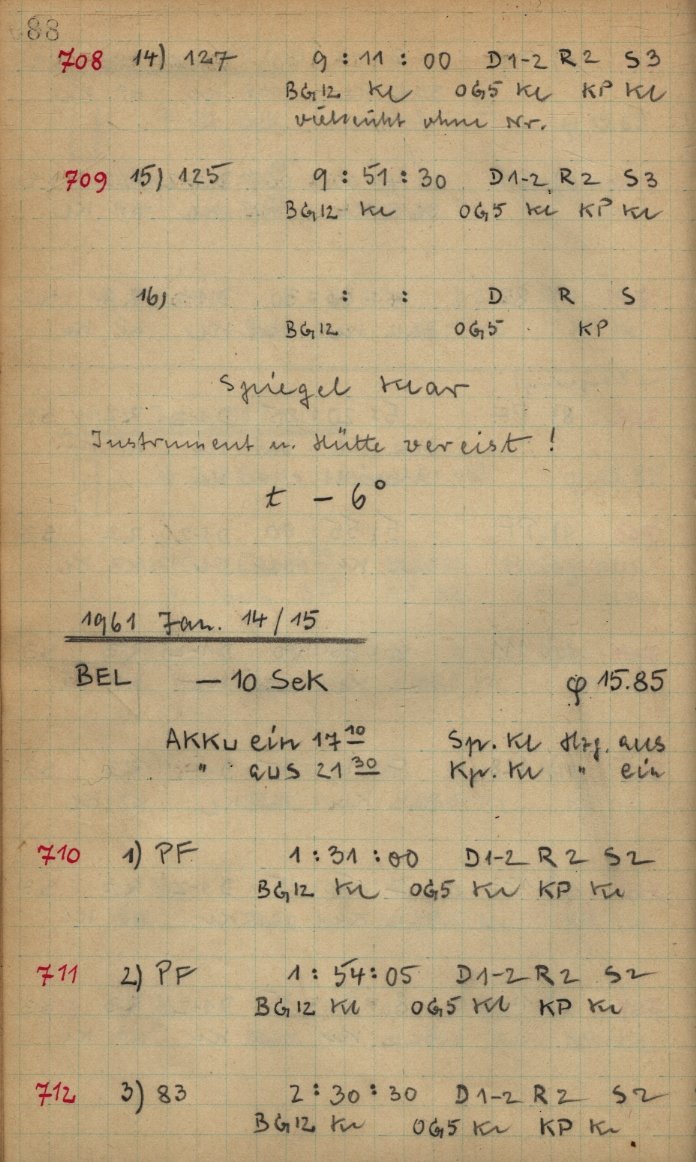 88
708 14) 127 9 : 11 : 00 D1-2 R2 S3
BG12 Kl OG5 Kl KP Kl
vielleicht ohne Nr.
709 15) 125 9 : 51 : 30 D1-2 R2 S3
BG12 Kl OG5 Kl KP Kl
16) : : D R S
BG12 OG5 KP
Spiegel klar
Instrument u. Hütte vereist !
t - 6°
1961 Jan. 14/15
BEL - 10 Sek φ 15.85
AKKu ein 17 10 Sp. Kl Hzg. aus
" aus 21 30 Kp. Kl " ein
710 1) PF 1 : 31 : 00 D1-2 R2 S2
BG12 Kl OG5 Kl KP Kl
711 2) PF 1 : 54 : 05 D1-2 R2 S2
BG12 Kl OG5 Kl KP Kl
712 3) 83 2 : 30 : 30 D1-2 R2 S2
BG12 Kl OG5 Kl KP Kl